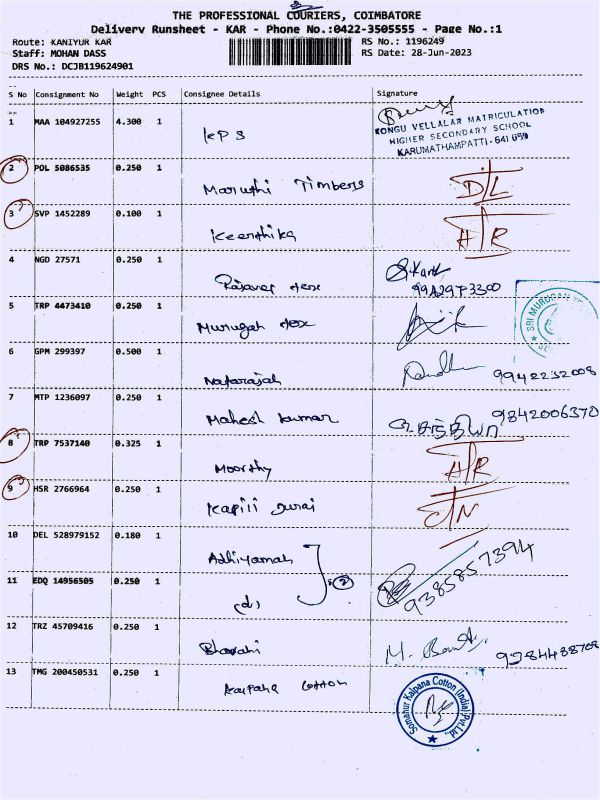 THE PROFESSIONAL COURIERS, COIMBATORE
Delivery Runsheet - KAR - Phone No.:0422-3505555 - Page No.:1
Route: KANIYUR KAR RS No.: 1196249
Staff: MOHAN DASS RS Date: 28-Jun-2023
DRS No.: DCJB119624901
S No Consignment No Weight PCS Consignee Details Signature
1 MAA 104927255 4.300 1 KPS
KONGU VELLALAR MATRICULATION
HIGHER SECONDARY SCHOOL
KARUMATHAMPATTI - 641 659
2 POL 5086535 0.250 1 Maruthi Timbers D/L
3 SVP 1452289 0.100 1 Keerthika A/R
4 NGD 27571 0.250 1 Rajavel tex S.Karth
9942973300
5 TRP 4473410 0.250 1 Murugan tex
SRI MURUGAN
6 GPM 299397 0.500 1 Natarajan 9942232008
7 MTP 1236097 0.250 1 Mahesh kumar 9842006370
8 TRP 7537140 0.325 1 Moorthy A/R
9 HSR 2766964 0.250 1 Kapili Durai
10 DEL 528979152 0.180 1 Adhiyaman
11 EDQ 14956505 0.250 1 (d) 2 9385857394
12 TRZ 45709416 0.250 1 Bhavani 9984488708
13 TMG 200450531 0.250 1 Kalpana Cotton
Somanur Kalpana Cotton (India) Pvt.Ltd.,